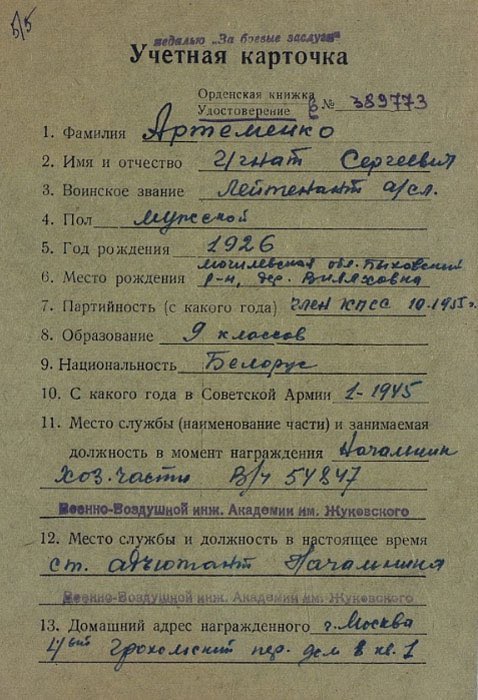 б/5
медалью „За боевые заслуги"
Учетная карточка
Орденская книжка
Удостоверение Б № 389773
1. Фамилия Артеменко
2. Имя и отчество Игнат Сергеевич
3. Воинское звание Лейтенант а/сл.
4. Пол мужской
5. Год рождения 1926
Могилевская обл. Быховский
6. Место рождения р-н, дер.
7. Партийность (с какого года) член КПСС 10.1955 г.
8. Образование 9 классов
9. Национальность Белорус
10. С какого года в Советской Армии 1-1945
11. Место службы (наименование части) и занимаемая
должность в момент награждения Начальник
хоз. части В/ч 54847
Военно-Воздушной инж. Академии им. Жуковского
12. Место службы и должность в настоящее время
ст. адъютант Начальника
Военно-Воздушной инж. Академии им. Жуковского
13. Домашний адрес награжденного г. Москва
4ый Грохольский пер. дом 8 кв. 1